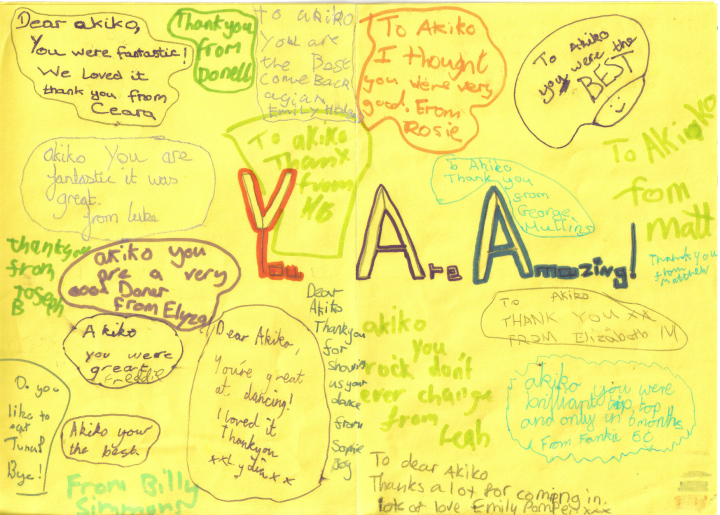 Dear akiko,
You were fantastic!
We Loved it
thank you from
Ceara
Thankyou
from
Donell
To akiko
you are
the Best
come Back
agian
Emily
To Akiko
I thought
you were very
good. From
Rosie
To Akiko
you were the
BEST
akiko You are
fantastic it was
great.
from luke
To akiko
Thanx
from
HB
To Akiko
Thank you
from
George
Mullins
To Akiko
fom
matt
Thankyou
from
matthew
You Are Amazing!
thankyou
from
Joseph
B
akiko you
are a very
good Doner
from Elyza
Akiko
you were
great
Freddie
Do you
like to
eat
Tuna?
Bye!
Akiko your
the best
From Billy
Simmons
Dear Akiko,
You're great
at dancing!
I loved it
Thankyou
xxLydiaxx
Dear
Akiko
Thankyou
for
showing
us your
dance
from
Sophie
Joy
akiko
you
rock don't
ever change
from
Leah
To Akiko
THANK YOU xx
FROM Elizabeth M
akiko you were
brilliant tip top
and only in 6 months
From 5C
To dear Akiko
Thanks a lot for comeing in.
lots of love Emily xxx